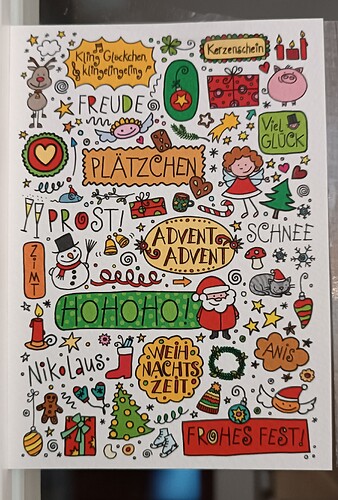 Kling Glöckchen
klingelingeling
Kerzenschein
FREUDE
Viel
GLÜCK
PLÄTZCHEN
PROST!
ADVENT
ADVENT
SCHNEE
ZIMT
HOHOHO!
Nikolaus
WEIH
NACHTS
ZEIT
ANIS
FROHES FEST!